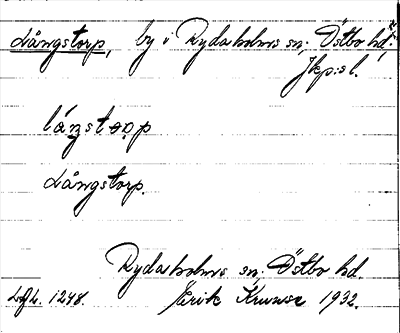 Långstorp, by i Rydaholms sn, Östbo hd.
Jkp:s l.
Långstorp.
Rydaholms sn, Östbo hd.
1248. Erik 1932.